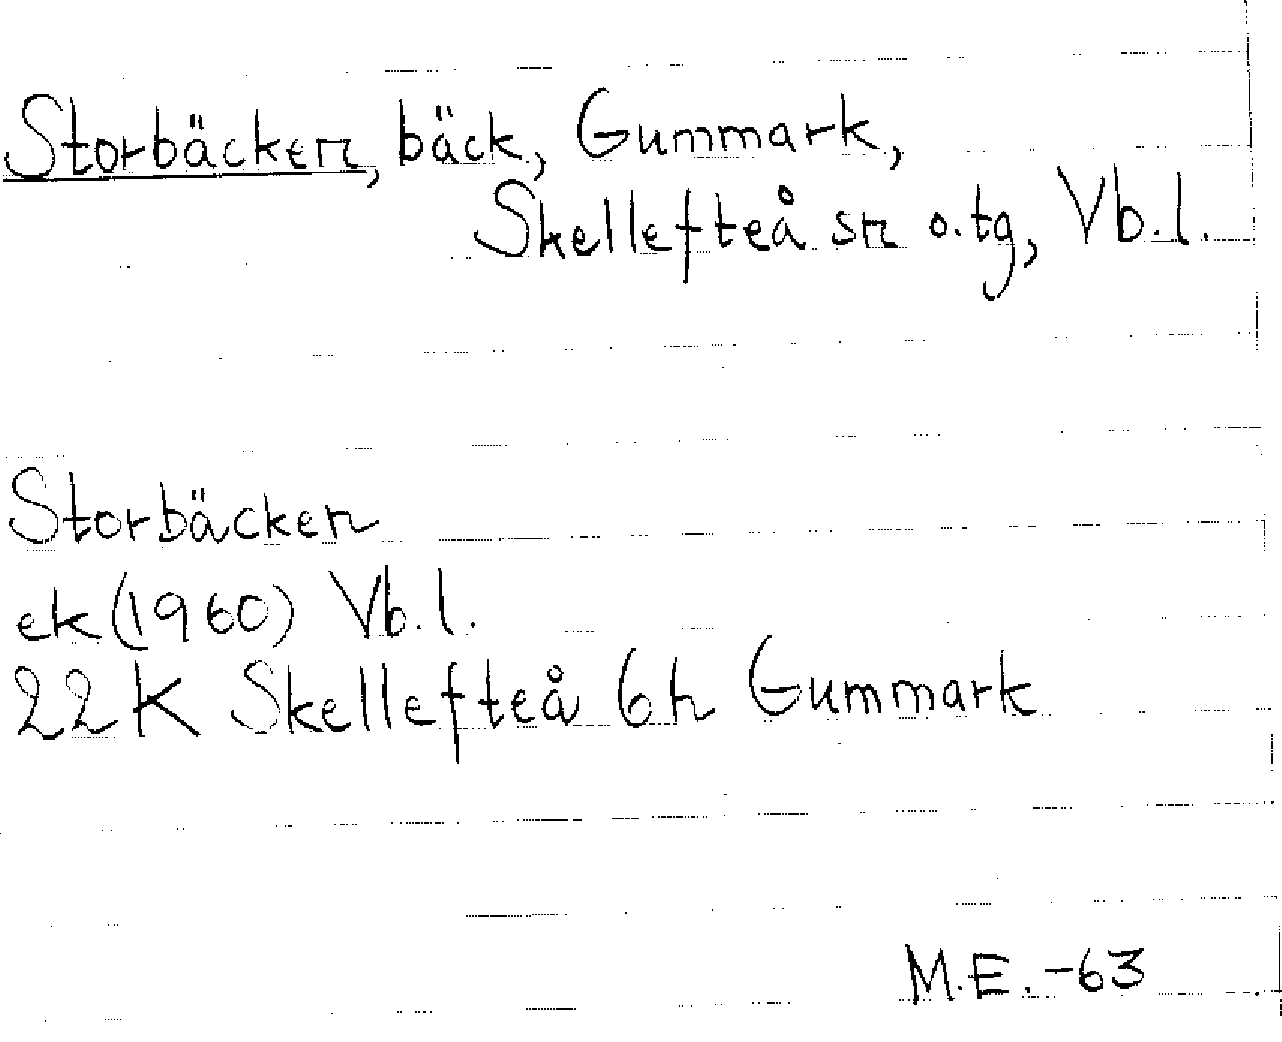 Storbäcken, bäck, Gummark,
Skellefteå sn o.tg, Vb.l.
Storbäcken
ek (1960) Vb.l.
22K Skellefteå 6h Gummark
M.E. -63